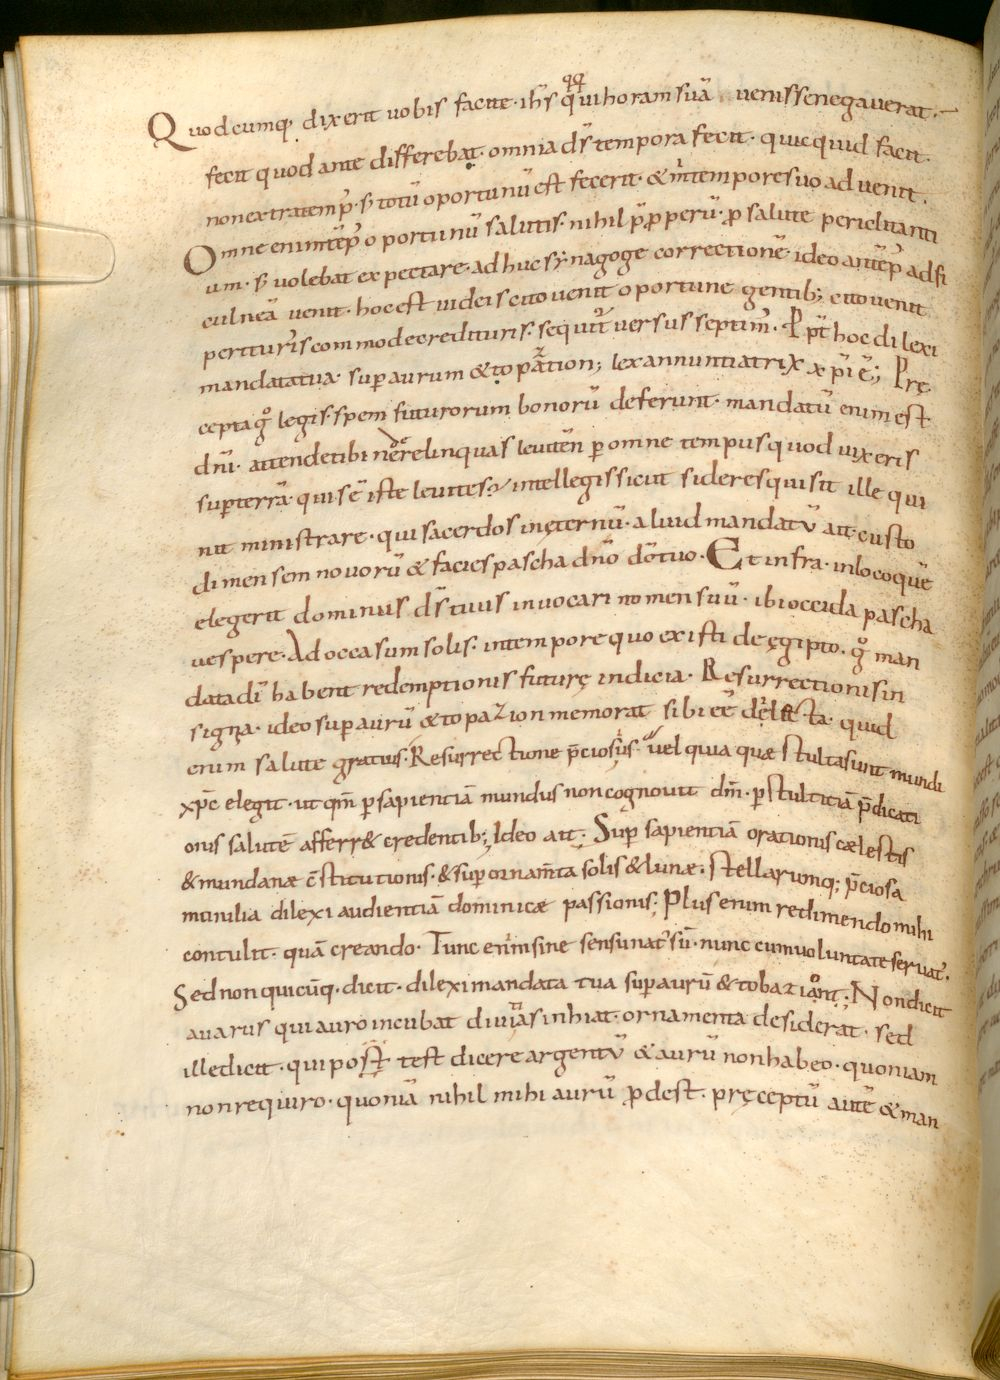 Quodcumq; dixerit uobis facite· ih̄s q̄q̄ui horam suā uenisse negauerat·
fecit quod ante differebat· omnia d̄s tempora fecit· quicquid facit·
non extra temp̄· s; totū oportunū est fecerit· & ī tempore suo aduenit·
Omne enim tēp' oportunū salutis· nihil p̄p̄perū· ꝓ salute periclitanti
um· s; uolebat expectare· adhuc synagoge correctionē· ideo antēp' ad fi
culneā uenit· hoc est iudeis cito uenit oportune gentib; cito uenit
perituris commode credituris· sequit̄ uersus septim̄· Ppt̄ hoc dilexi
mandata tua· sup aurum & topation; lex annuntiatrix xp̄i ē; Pre
cepta ḡ legis· spem futurorum bonorū deferunt· mandatū enim est
dn̄i· attende tibi ne derelinquas leuitēn p omne tempus quod uixeris
sup terrā· quis ē iste leuites? intellegis si cui desideres quis sit ille qui
nit ministrare· qui sacerdos inęternū· aliud mandatū ait· custo
di mensem nouorū & facies pascha dn̄o dō tuo· Et infra· in loco quē
elegerit dominus d̄s tuus inuocari nomen suū· ibi occida pascha
uespere· Ad occasum solis· in tempore quo existi de ęgipto· ḡ man
data dī habent redemptionis futurę indicia· Resurrectionis in
signa· ideo sup aurū & topazion memorat sibi eē dilecta· quid
enim salute gratius· Resurrectione p̄ciosius· uel quia quæ stulta sunt mundi
xp̄c elegit· ut qm̄ p sapientiā mundus non cognouit dm̄· p stultitiā p̄dicati
onis salutē afferr& credentib; Ideo ait· Sup sapientiā orationis cælestis
& mundanæ c̄stitutionis· & sup ornam̄ta solis & lunæ· stellarumq; p̄ciosa
munilia dilexi audientiā dominicæ passionis; Plus enim redimendo mihi
contulit· quā creando· Tunc enim sine sensu nat' sū· nunc cum uoluntate seruat'·
Sed non quicūq· dicit· dilexi mandata tua sup aurū & tobaziōnt; Non dicit
auarus qui auro incubat diuitias inhiat· ornamenta desiderat· sed
ille dicit· qui post test dicere argentū & aurū non habeo· quoniam
non requiro· quoniā nihil mihi aurū ꝓdest· pręceptū autē & man